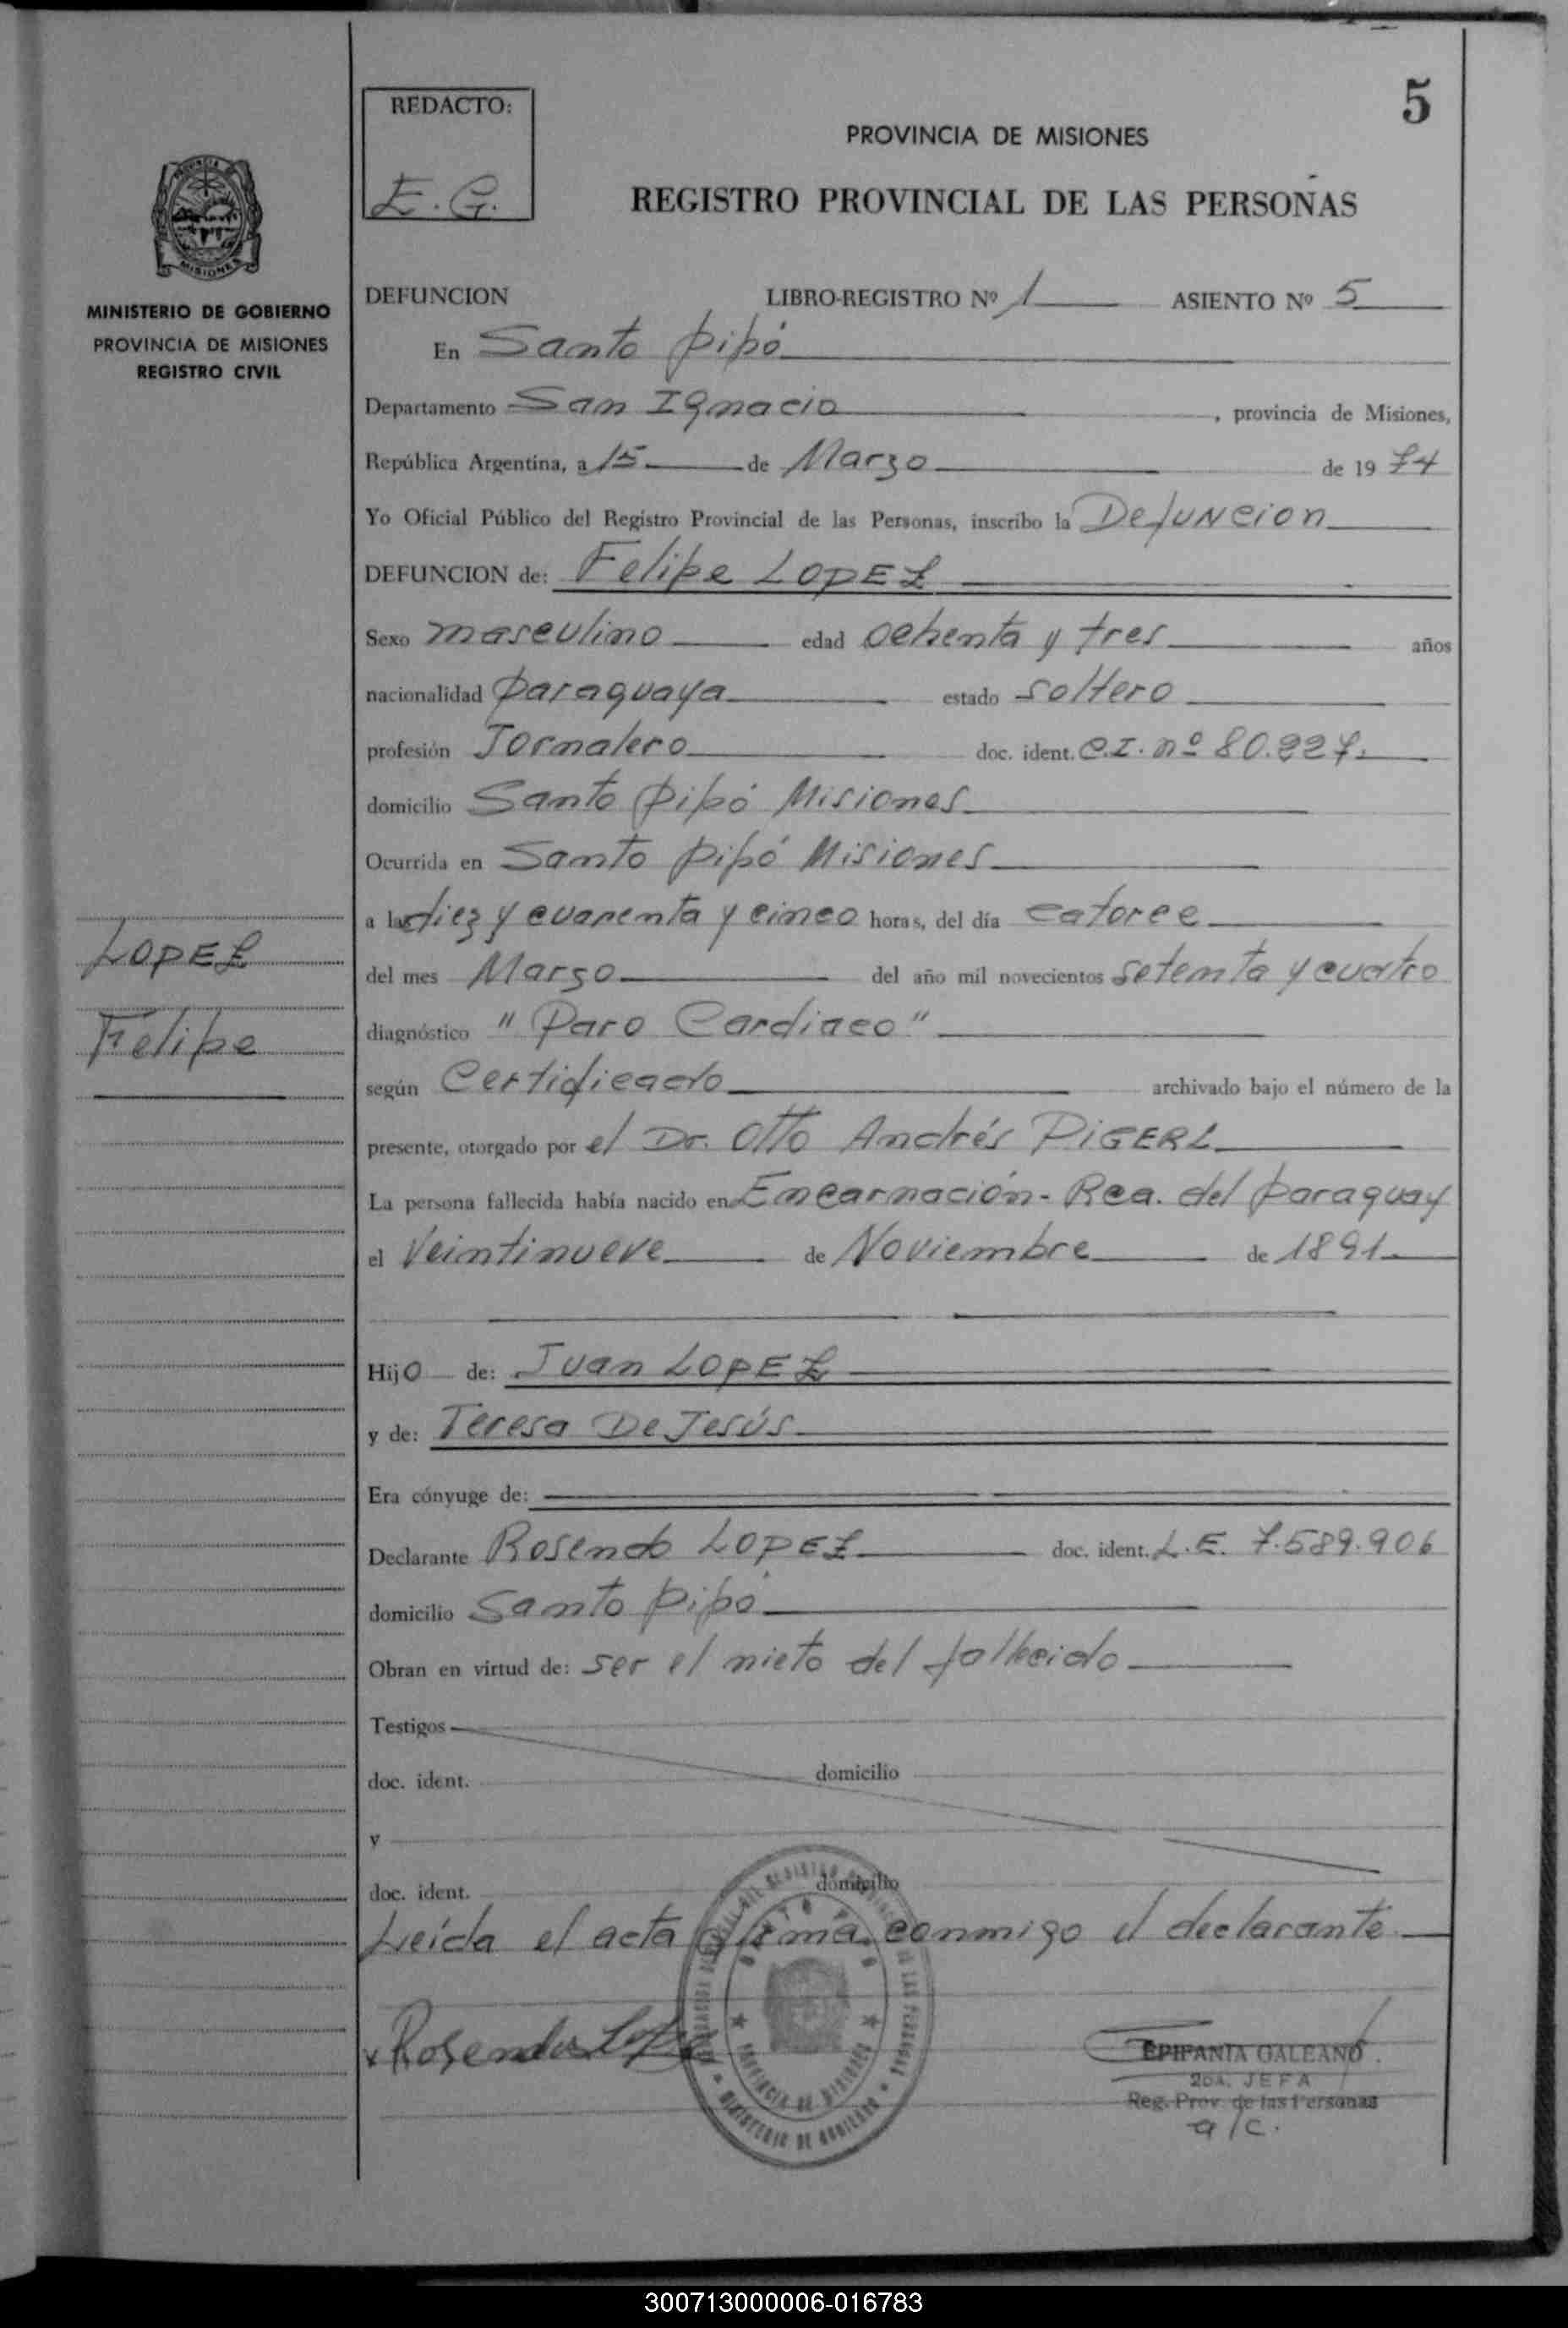 5
REDACTO:
E. G.
PROVINCIA DE MISIONES
REGISTRO PROVINCIAL DE LAS PERSONAS
MISIONES
MINISTERIO DE GOBIERNO
PROVINCIA DE MISIONES
REGISTRO CIVIL
DEFUNCION LIBRO-REGISTRO Nº 1 ASIENTO Nº 5
En Santo pipó
Departamento San Ignacio, provincia de Misiones,
República Argentina, a 15 de Marzo de 19 74
Yo Oficial Público del Registro Provincial de las Personas, inscribo la Defuncion
DEFUNCION de: Felipe LOPEZ
Sexo masculino edad ochenta y tres años
nacionalidad paraguaya estado soltero
profesión Jornalero doc. ident. C.I. nº 80.227.
domicilio Santo pipó Misiones
Ocurrida en Santo pipó Misiones
a las diez y cuarenta y cinco horas, del día catorce
LOPEZ
del mes Marzo del año mil novecientos setenta y cuatro
Felipe
diagnóstico "Paro Cardiaco"
según Certificado archivado bajo el número de la
presente, otorgado por el Dr. Otto Andrés PIGERL
La persona fallecida había nacido en Encarnación - Rca. del paraguay
el Veintinueve de Noviembre de 1891
Hijo de: Juan LOPEZ
y de: Teresa De Jesús
Era cónyuge de:
Declarante Rosendo LOPEZ doc. ident. L.E. 7.589.906
domicilio Santo pipó
Obran en virtud de: ser el nieto del fallecido
Testigos
doc. ident. domicilio
y
doc. ident. domicilio
Leída el acta firma conmigo el declarante
x Rosendo Lopez
PROVINCIA DE MISIONES
MINISTERIO DE GOBIERNO
EPIFANIA GALEANO
2DA. JEFA
Reg. Prov. de las Personas
a/c.
300713000006-016783